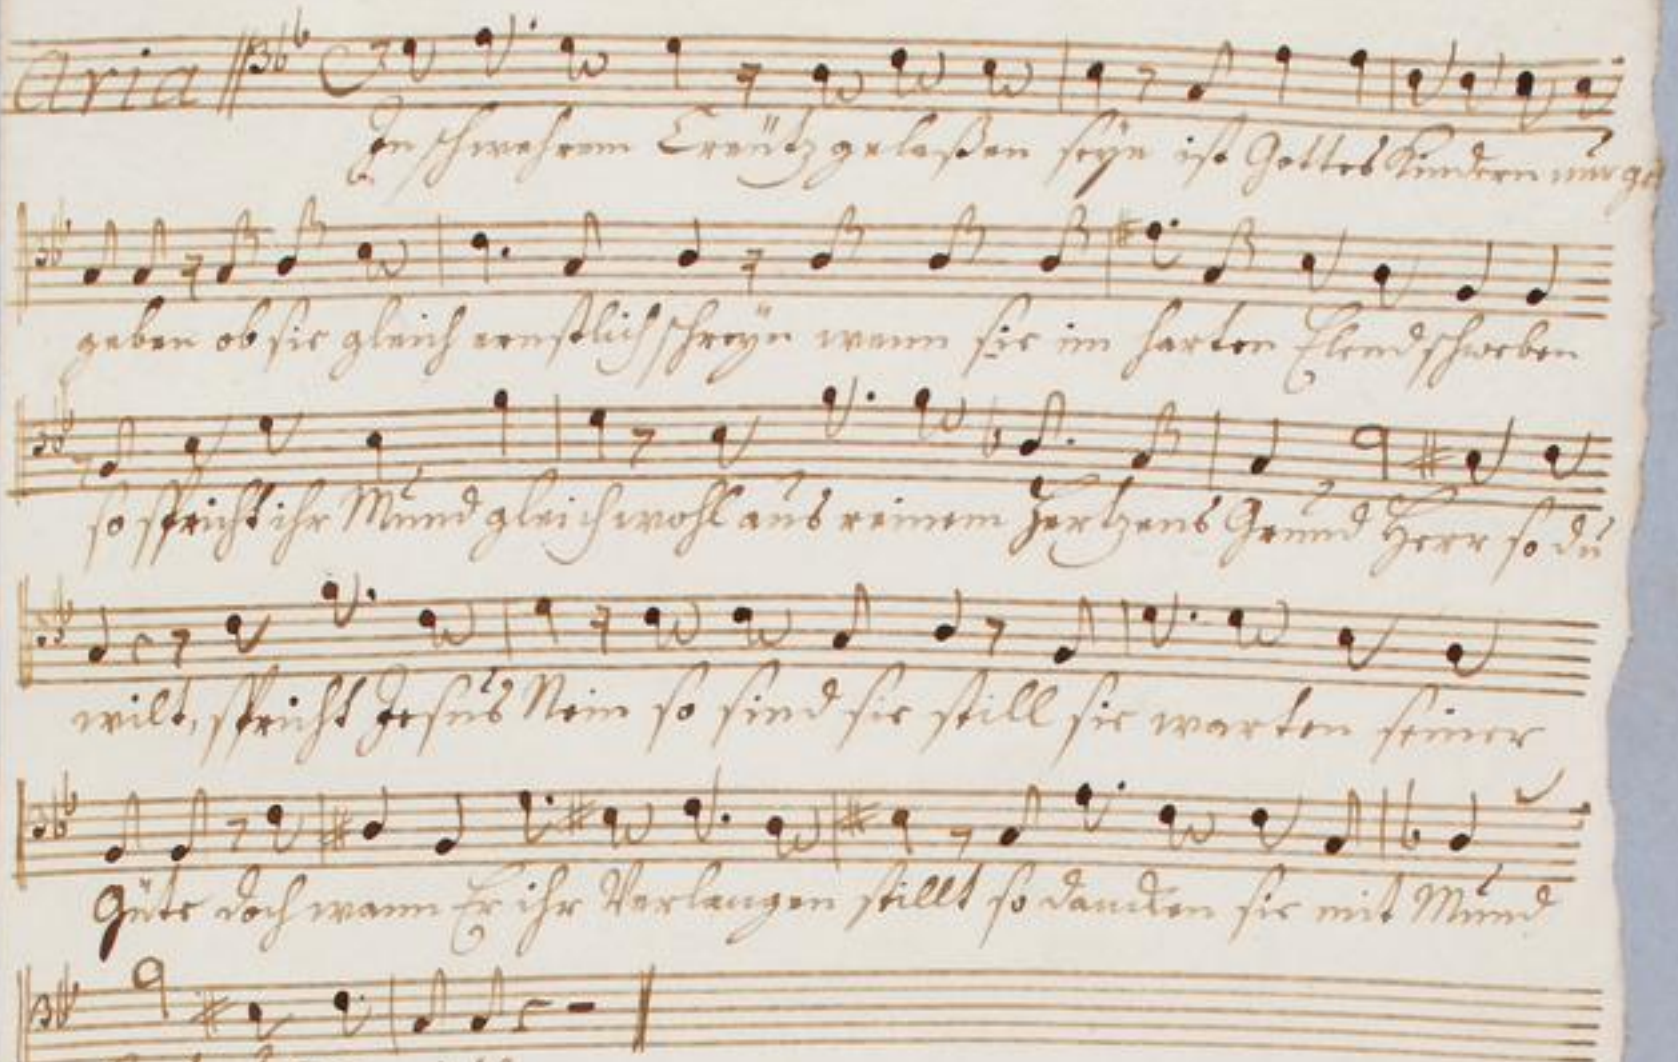 Aria
In schwehrem Creütz gelaßen seyn ist Gottes Kindern nur ge
geben ob sie gleich ernstlich schreyn wenn sie im harten Elend schweben
so spricht ihr Mund gleichwohl aus reinem Hertzens Grund Herr so du
wilt, spricht Jesus Nein so sind sie still sie warten seiner
Güte doch wann Er ihr Verlangen stillt so dancken sie mit Mund